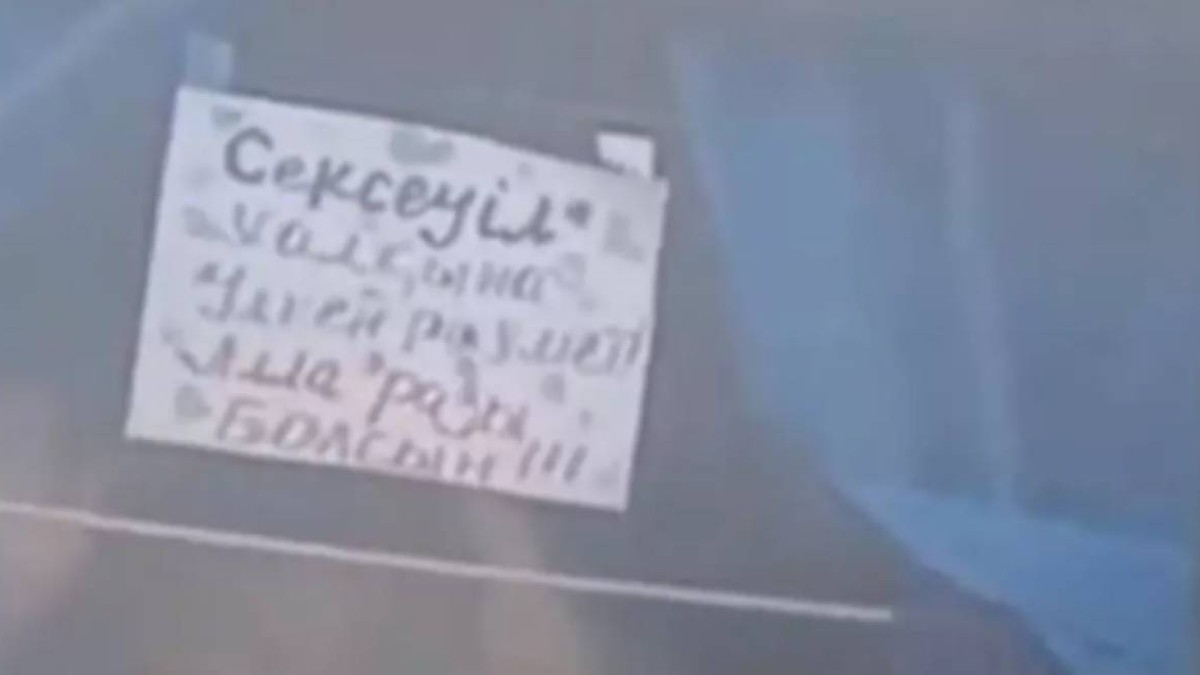 Сексеуіл"
халқына
Үлкен рахмет!
Алла разы
Болсын!!!